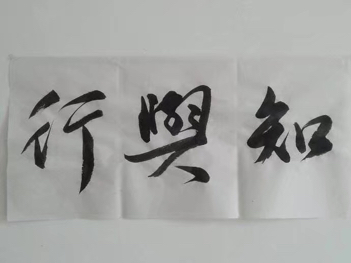 知與行